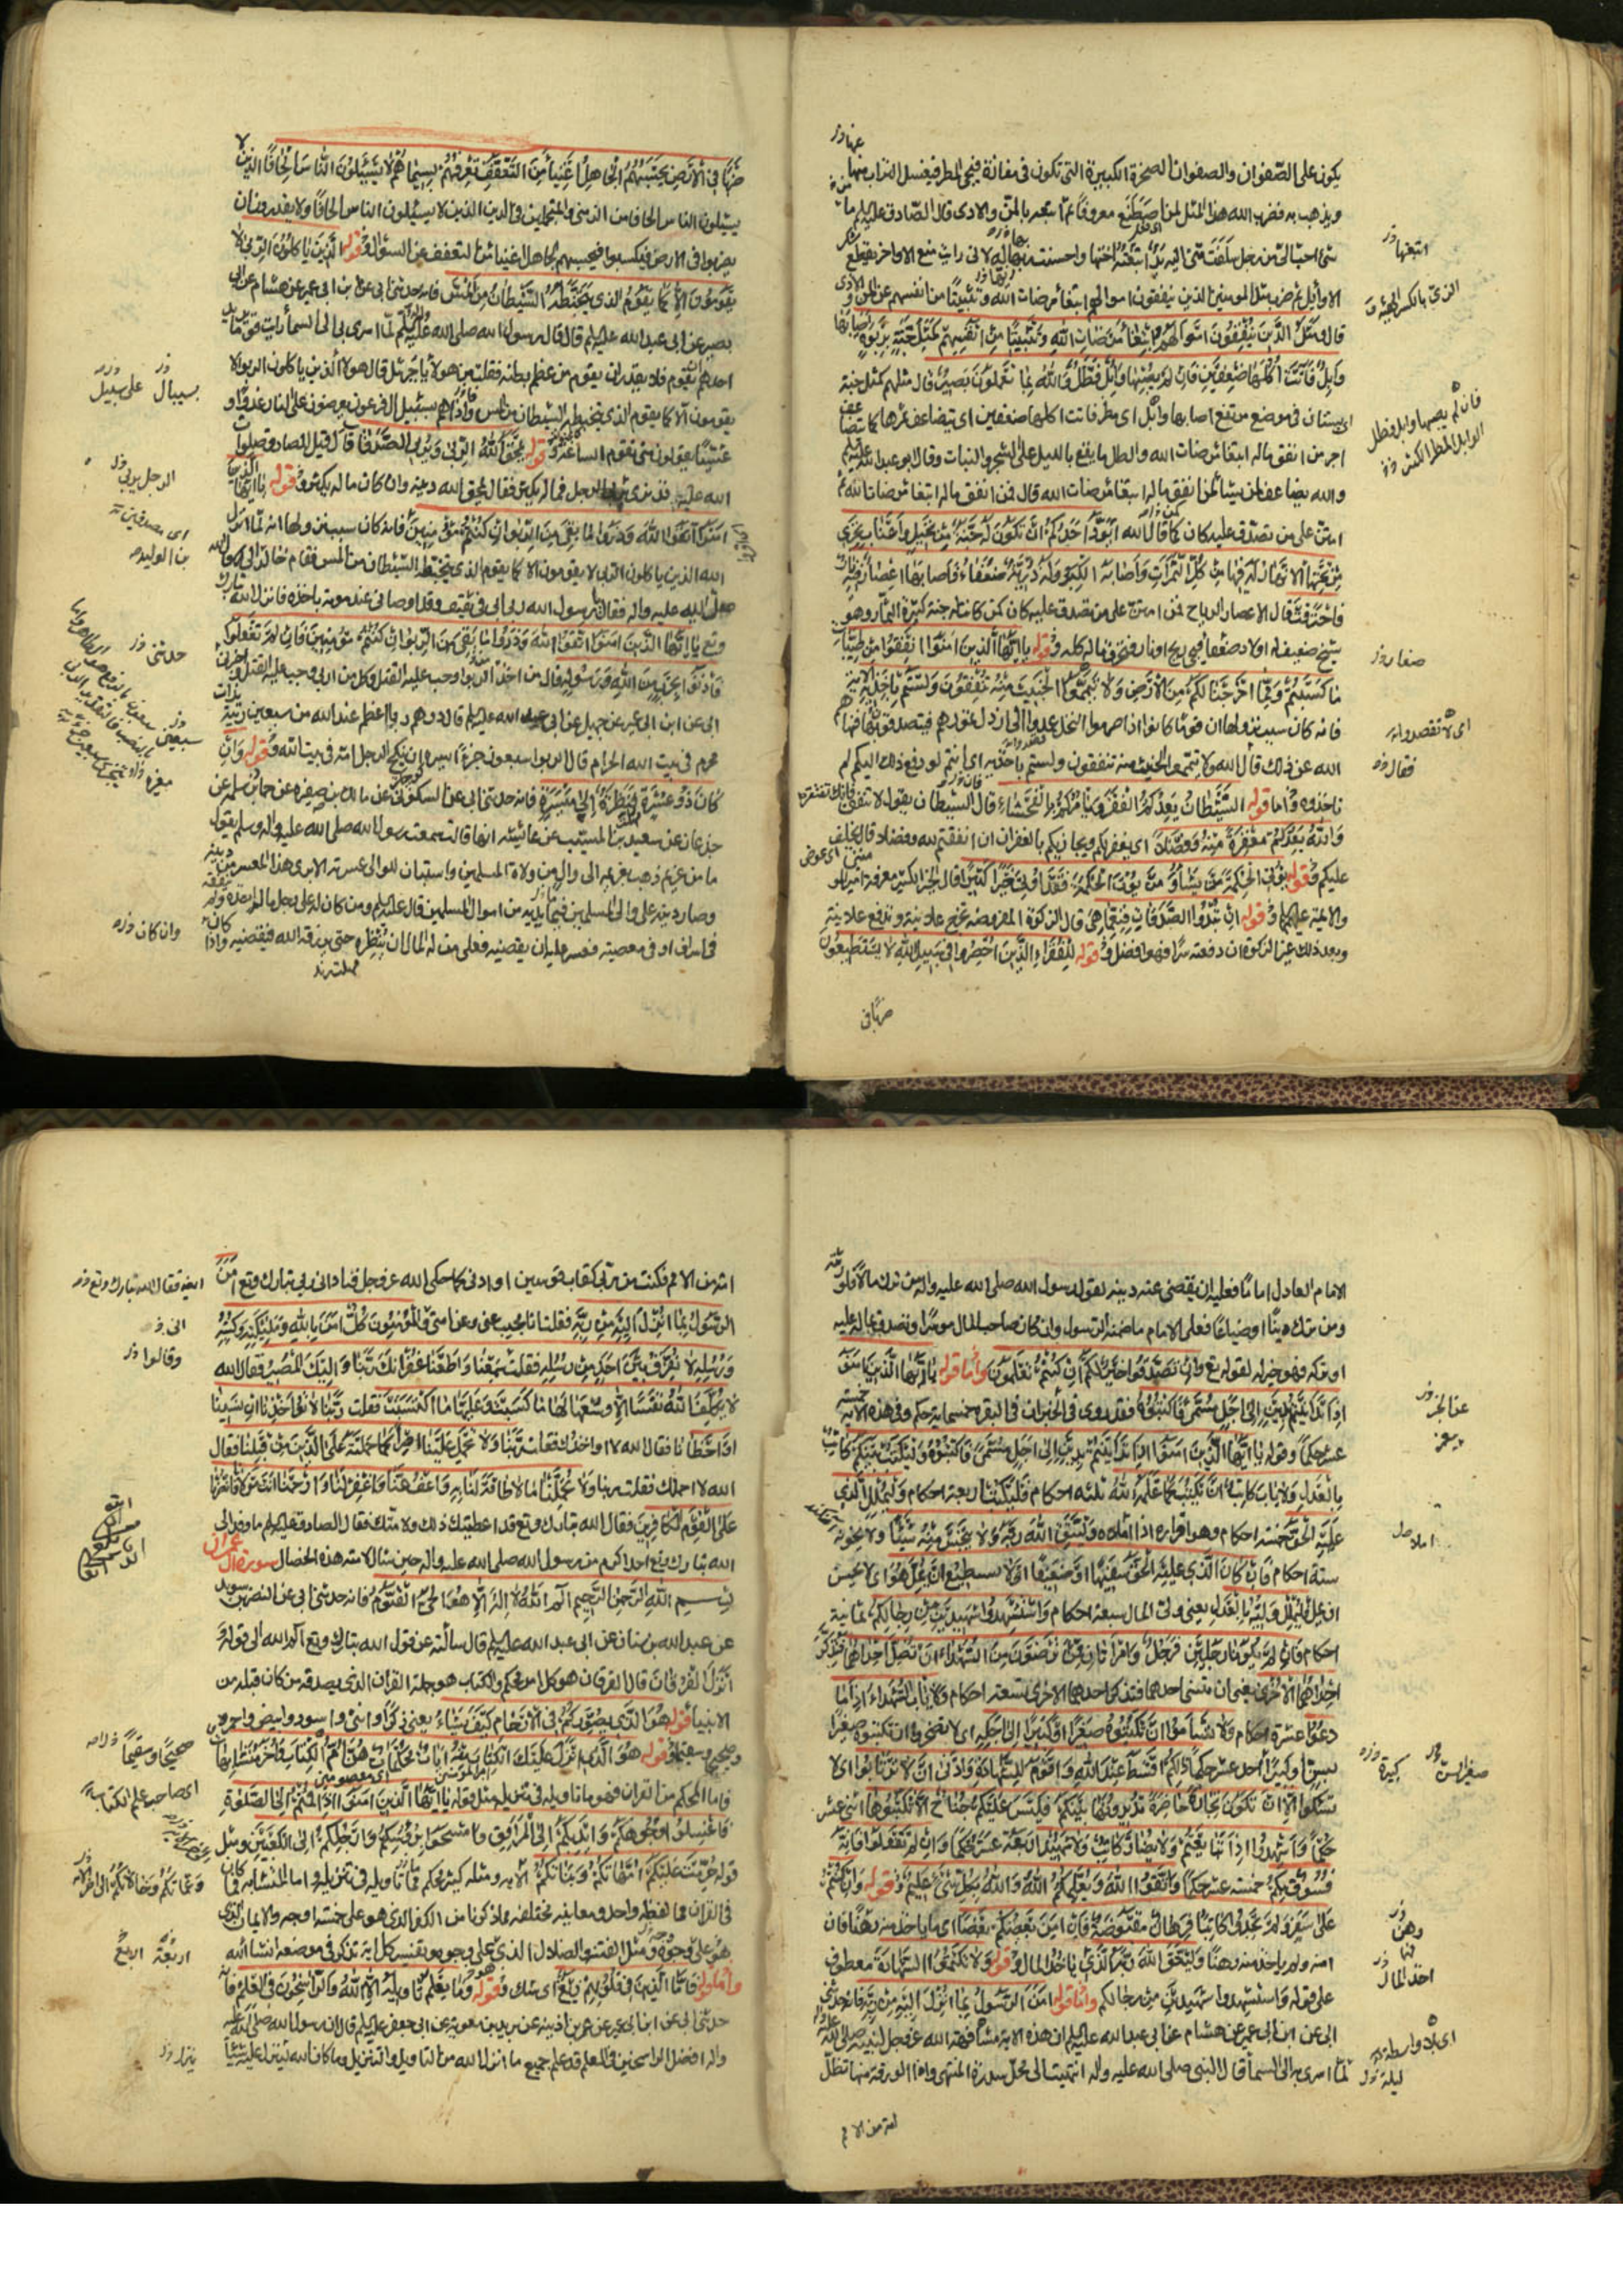 يكون على الصّفوان والصفوان الصخرة الكبيرة التي تكون في مفازة فيجئ المطر فيغسل التراب منها
ويذهب به فضرب الله هذا المثل لمن اصطنع معروفا ثم اتبعه بالمنّ والاذى قال الصّادق عليه‌لم ما من
شئ احبّ اليّ من رجل سلفت منّي اليه يد اتبعته اختها واحسنت بها له لاني رايت منع الاواخر يقطع
الاوائل ثم ضرب مثل المومنين الذين ينفقون اموالهم ابتغاء مرضات الله وتثبيتا من انفسهم عن المنّ والاذى
قال ومثل الّذين ينفقون اموالهم ابتغاء مرضات الله وتثبيتا من انفسهم كمثل جنّة بربوة اصابها
وابل فاتت اكلها ضعفين فان لم يصبها وابل فطلّ والله بما تعملون بصير قال مثلهم كمثل جنة
اي بستان في موضع مرتفع اصابها وابل اي مطر فاتت اكلها ضعفين اي يتضاعف ثمرها كما يتضاعف
اجر من انفق ماله ابتغاء مرضات الله والطل ما يقع بالليل على الشجر والنبات وقال ابو عبد الله عليه‌لم
والله يضاعف لمن يشاء لمن انفق ماله ابتغاء مرضات الله قال فمن انفق ماله ابتغاء مرضات الله ثم
امتنّ على من تصدّق عليه كان كما قال الله ايودّ احدكم ان تكون له جنّة من نخيل واعناب تجري
من تحتها الانهار له فيها من كلّ الثمرات واصابه الكبر وله ذرّيّة ضعفاء فاصابها اعصار فيه نار
فاحترقت قال الاعصار الرياح فمن امتنّ على من تصدق عليه كان كمن كان له جنة كثيرة الثمار وهو
شيخ ضعيف له اولاد ضعفا فيجئ ريح او نار فتحرق ماله كله وقوله يا ايّها الّذين امنوا انفقوا من طيّبات
ما كسبتم وممّا اخرجنا لكم من الارض ولا تيمّموا الخبيث منه تنفقون ولستم باخذيه
فانه كان سبب نزولها ان قوما كانوا اذا صرموا النخل عمدوا الى ارذل تمورهم فيتصدقون بها فنهاهم
الله عن ذلك فقال الله ولا تيمّموا الخبيث منه تنفقون ولستم باخذيه اي انتم لو دفع ذلك اليكم لم
تاخذوه وامّا قوله الشّيطان يعدكم الفقر ويامركم بالفحشاء قال الشيطان يقول لا تنفق فانك تفتقر
والله يعدكم مغفرة منه وفضلا اي يغفر لكم ويجازيكم بالغفران ان انفقتم لله وفضلا قال يخلف
عليكم وقوله يؤتي الحكمة من يشاء ومن يؤت الحكمة فقد اوتي خيرا كثيرا قال الخير الكثير معرفة امير المومنين
والائمة عليهم‌لم وقوله ان تبدوا الصّدقات فنعمّا هي قال الزكوة المفروضة تخرج علانية وتدفع علانية
وبعد ذلك غير الزكوة ان دفعته سرّا فهو افضل وقوله للفقراء الّذين احصروا في سبيل الله لا يستطيعون
ضربا في
اتبعتها
فان لم يصبها وابل فطل
اي لا تقصدوا
فقال
ضربا في الارض يحسبهم الجاهل اغنياء من التعفّف تعرفهم بسيماهم لا يسئلون النّاس الحافا الذين لا
يسئلون الناس الحافا من
يضربوا في الارض فيكسبوا فيحسبهم الجاهل اغنياء من التعفف عن السئوال وقوله الّذين ياكلون الرّبى لا
يقومون الّا كما يقوم الذي يتخبّطه الشّيطان من المسّ فانه حدثني ابي عن ابن ابي عمير عن هشام عن ابي
بصير عن ابي عبد الله عليه‌لم قال قال رسول الله صلى الله عليه لمّا اسري بي الى السماء رايت قوما يريد
احدهم ان يقوم فلا يقدر ان يقوم من عظم بطنه فقلت من هولاء يا جبرئيل قال هولاء الذين ياكلون الربوا لا
يقومون الّا كما يقوم الذي يتخبطه الشيطان من المس واذا هم بسبيل ال فرعون يعرضون على النار غدوّا و
عشيّا يقولون متى تقوم الساعة وقوله يمحق الله الرّبى ويربي الصّدقات قال قيل للصادق صلوات
الله عليه قد نرى الرجل يربي وماله يكثر فقال يمحق الله دينه وان كان ماله يكثر وقوله يا ايّها الّذين
امنوا اتّقوا الله وذروا ما بقي من الرّبوا ان كنتم مؤمنين فانه كان سبب نزولها انه لمّا انزل
الله الذين ياكلون الربى لا يقومون الا كما يقوم الذي يتخبّطه الشيطان من المس فقام خالد
صلى الله عليه واله فقال يا رسول الله ربا ابي في ثقيف وقد اوصاني عند موته باخذه فانزل الله تبارك
وتع يا ايّها الّذين امنوا اتّقوا الله وذروا ما بقي من الرّبوا ان كنتم مؤمنين فان لم تفعلوا
فاذنوا بحرب من الله ورسوله قال من اخذ الربوا وجب عليه القتل وكل من اربى وجب عليه القتل واخبرني
ابي عن ابن ابي عمير عن جميل عن ابي عبد الله عليه‌لم قال درهم ربوا اعظم عند الله من سبعين زنية
محرم في بيت الله الحرام قال الربوا سبعون جزءا ايسره ان ينكح الرجل امّه في بيت الله وقوله وان
كان ذو عسرة فنظرة الى ميسرة فانه حدثني ابي عن السكوني عن مالك بن مغيرة عن حماد بن سلمة عن
جذعان عن سعيد بن المسيّب عن عائشة انها قالت سمعت رسول الله صلى الله عليه واله وسلم يقول
ما من غريم ذهب بغريمه الى وال من ولاة المسلمين واستبان للوالي عسرته الا برى هذا المعسر من دينه
وصار دينه على والي المسلمين فيما يديه من اموال المسلمين قال عليه‌لم ومن كان له على رجل مال اخذه ولم
في اسراف او في معصية فعسر عليه ان يقضيه فعلى من له المال ان ينظره حتى يرزقه الله فيقضيه واذا
على سبيل
الرجل يربي
حدثني
سبعين
وان كان
الامام العادل
ومن ترك دينا او ضياعا فعلى الامام ما ضمنه الرسول وان كان صاحب المال موسرا وتصدق بماله عليه
او تركه فهو خير له لقوله تع وان تصّدّقوا خير لكم ان كنتم تعلمون وامّا قوله يا ايّها الّذين امنوا
اذا تداينتم بدين الى اجل مسمّى فاكتبوه فقد روى في الخبر ان في البقرة خمسمائة حكم وفي هذه الاية خمسة
عشر حكما وهو قوله يا ايّها الّذين امنوا اذا تداينتم بدين الى اجل مسمّى فاكتبوه وليكتب بينكم كاتب
بالعدل ولا ياب كاتب ان يكتب كما علّمه الله ثلثة احكام فليكتب اربعة احكام وليملل الّذي
عليه الحقّ خمسة احكام وهو اقراره اذا املاه وليتّق الله ربّه ولا يبخس منه شيئا ولا يخونه
ستة احكام فان كان الّذي عليه الحقّ سفيها او ضعيفا او لا يستطيع ان يملّ هو اي لا يحسن
ان يمل فليملل وليّه بالعدل يعني ولي المال سبعة احكام واستشهدوا شهيدين من رجالكم ثمانية
احكام فان لم يكونا رجلين فرجل وامراتان ممّن ترضون من الشهداء ان تضلّ احداهما فتذكّر
احداهما الاخرى يعني ان تنسى احدهما فتذكر احدهما الاخرى تسعة احكام ولا ياب الشهداء اذا ما
دعوا عشرة احكام ولا تساموا ان تكتبوه صغيرا او كبيرا الى اجله اي لا تضجروا ان تكتبوه صغيرا
لسن او كبيرا احد عشر حكما ذلكم اقسط عند الله واقوم للشهادة وادنى ان لا ترتابوا اي لا
تشكوا الّا ان تكون تجارة حاضرة تديرونها بينكم فليس عليكم جناح الّا تكتبوها اثنى عشر
حكما واشهدوا اذا تبايعتم ولا يضارّ كاتب ولا شهيد اربعة عشر حكما وان تفعلوا فانه
فسوق بكم خمسة عشر حكما واتّقوا الله ويعلّمكم الله والله بكل شئ عليم وقوله وان كنتم
على سفر ولم تجدوا كاتبا فرهان مقبوضة فان امن بعضكم بعضا اي ياخذ منه رهنا فان
امنه ولم ياخذ منه رهنا وليتّق الله ربّه الّذي ياخذ المال وقوله ولا تكتموا الشهادة معطوف
على قوله واستشهدوا شهيدين من رجالكم وامّا قوله امن الرّسول بما انزل اليه من ربّه فانه حدثني
ابي عن ابن ابي عمير عن هشام عن ابي عبد الله عليه‌لم ان هذه الاية مشافهة الله عز وجل لنبيه صلى الله عليه واله
لمّا اسري به الى السماء قال النبي صلى الله عليه واله انتهيت الى محل سدرة المنتهى واذا الورقة منها تظلّ
امة من الامم
وهن
اخذ المال
اي بلا واسطة
ليلة
امّة من الامم فكنت من ربي كقاب قوسين او ادنى كما حكى الله عز وجل فناداني ربي تبارك وتع امن
الرّسول بما انزل اليه من ربّه فقلت انا مجيب عني وعن امتي والمؤمنون كلّ امن بالله وملئكته وكتبه
ورسله لا نفرّق بين احد من رسله فقلت سمعنا واطعنا غفرانك ربّنا واليك المصير فقال الله
لا يكلّف الله نفسا الّا وسعها لها ما كسبت وعليها ما اكتسبت فقلت ربّنا لا تؤاخذنا ان نسينا
او اخطانا فقال الله لا اواخذك فقلت ربّنا ولا تحمل علينا اصرا كما حملته على الّذين من قبلنا فقال
الله لا احملك فقلت ربنا ولا تحمّلنا ما لا طاقة لنا به واعف عنّا واغفر لنا وارحمنا انت مولانا فانصرنا
على القوم الكافرين فقال الله تبارك وتع قد اعطيتك ذلك ولامتك فقال الصادق عليه‌لم ما وفد الى
الله تبارك وتع احد اكرم من رسول الله صلى الله عليه واله حين سال لامته هذه الخصال سورة ال عمران
بسم الله الرّحمن الرّحيم الم الله لا اله الّا هو الحيّ القيّوم فانه حدثني ابي عن النضر بن سويد
عن عبد الله بن سنان عن ابي عبد الله عليه‌لم قال سالته عن قول الله تبارك وتع الم الله الى قوله و
انزل الفرقان قال الفرقان هو كل امر محكم والكتاب هو جملة القران الذي يصدقه من كان قبله من
الانبيا وقوله هو الّذي يصوّركم في الارحام كيف يشاء يعني ذكرا او انثى واسود وابيض واحمر
وصحيح وسقيم وقوله هو الّذي انزل عليك الكتاب منه ايات محكمات هنّ امّ الكتاب واخر متشابهات
فاما المحكم من القران فهو ما تاويله في تنزيله مثل قوله يا ايّها الّذين امنوا اذا قمتم الى الصّلوة
فاغسلوا وجوهكم وايديكم الى المرافق وامسحوا برؤسكم وارجلكم الى الكعبين ومثل
قوله حرّمت عليكم امّهاتكم وبناتكم الاية ومثله كثير محكم مما تاويله في تنزيله واما المتشابه فما كان
في القران مما لفظه واحد ومعانيه مختلفة مما ذكرنا من الكفر الذي هو على خمسة اوجه والايمان الذي
هو على وجوه ومثل الفتنة والضلال الذي على وجوه وتفسير كل اية نذكره في موضعه انشاء الله
وامّا قوله فامّا الّذين في قلوبهم زيغ اي شك وقوله وما يعلم تاويله الّا الله والرّاسخون في العلم فانه
حدثني ابي عن ابن ابي عمير عن عمر بن اذينة عن بريد بن معوية عن ابي جعفر عليه‌لم قال ان رسول الله صلى الله عليه
واله افضل الراسخين في العلم قد علم جميع ما انزل الله من التاويل والتنزيل وما كان الله لينزل عليه شيئا
وقالوا
صحيحا وسقيما
وعماتكم وخالاتكم الى اخر الاية
اربعة